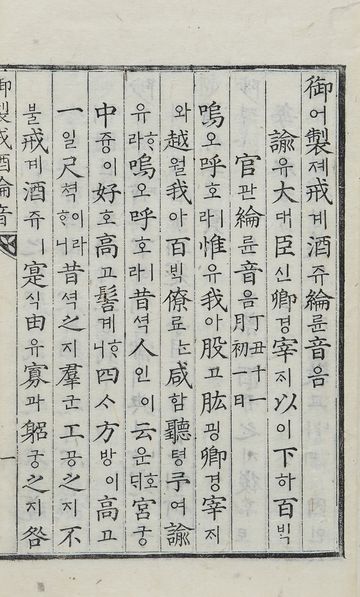 御어製졔戒계酒쥬綸륜音음
諭유大대臣신卿경宰지以이下하百ᄇᆡᆨ
官관綸륜音음丁丑十一月初一日
嗚오呼호ㅣ라惟유我아股고肱굉卿경宰ᄌᆡ지
와越월我아百ᄇᆡᆨ僚료ᄂᆞᆫ咸함聽텽予여諭
유ᄒᆞ라嗚오呼호ㅣ라昔셕人인이云운호ᄃᆡ宮궁
中듕이好호高고髻계ᄒᆞ니四ᄉᆞ方방이高고
一일尺쳑이라ᄒᆞ니昔셕之지羣군工공之지不
불戒계酒쥬ㅣ寔식由유寡과躬궁之지咎
御製戒酒綸音
一